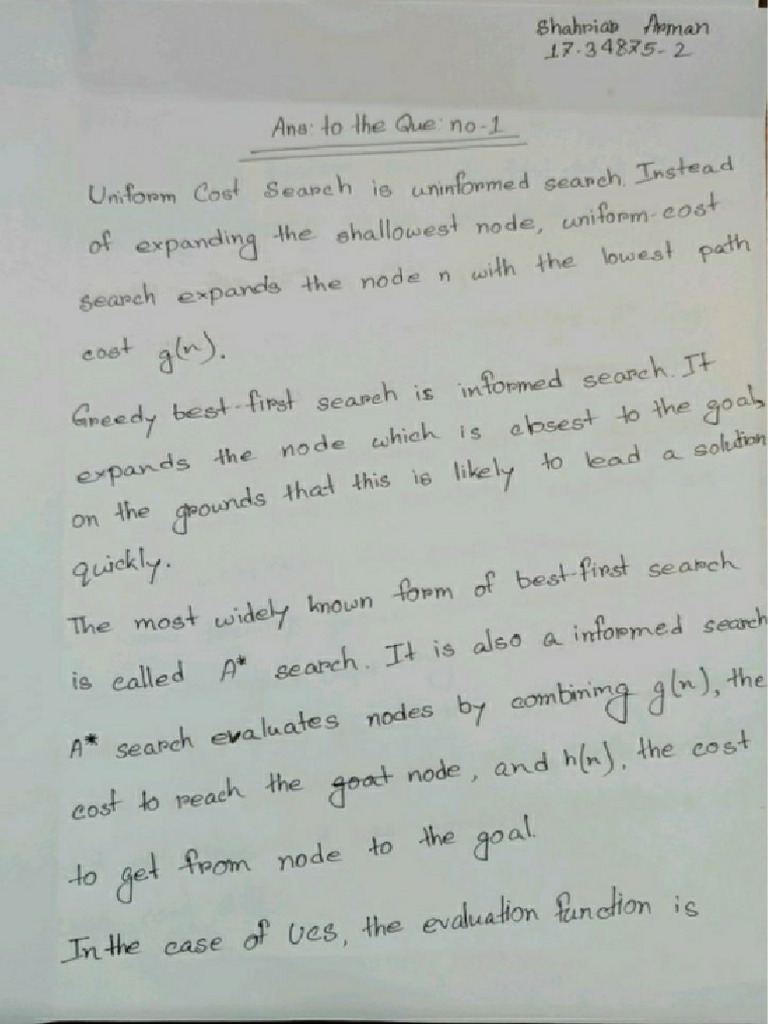 Shahriar Arman
17-34875-2
Ans: to the Que: no-1
Uniform Cost Search is uninformed search. Instead
of expanding the shallowest node, uniform-cost
search expands the node n with the lowest path
cost g(n).
Greedy best-first search is informed search. It
expands the node which is closest to the goal,
on the grounds that this is likely to lead a solution
quickly.
The most widely known form of best-first search
is called A* search. It is also a informed search
A* search evaluates nodes by combining g(n), the
cost to reach the goat node, and h(n), the cost
to get from node to the goal.
In the case of UCS, the evaluation function is